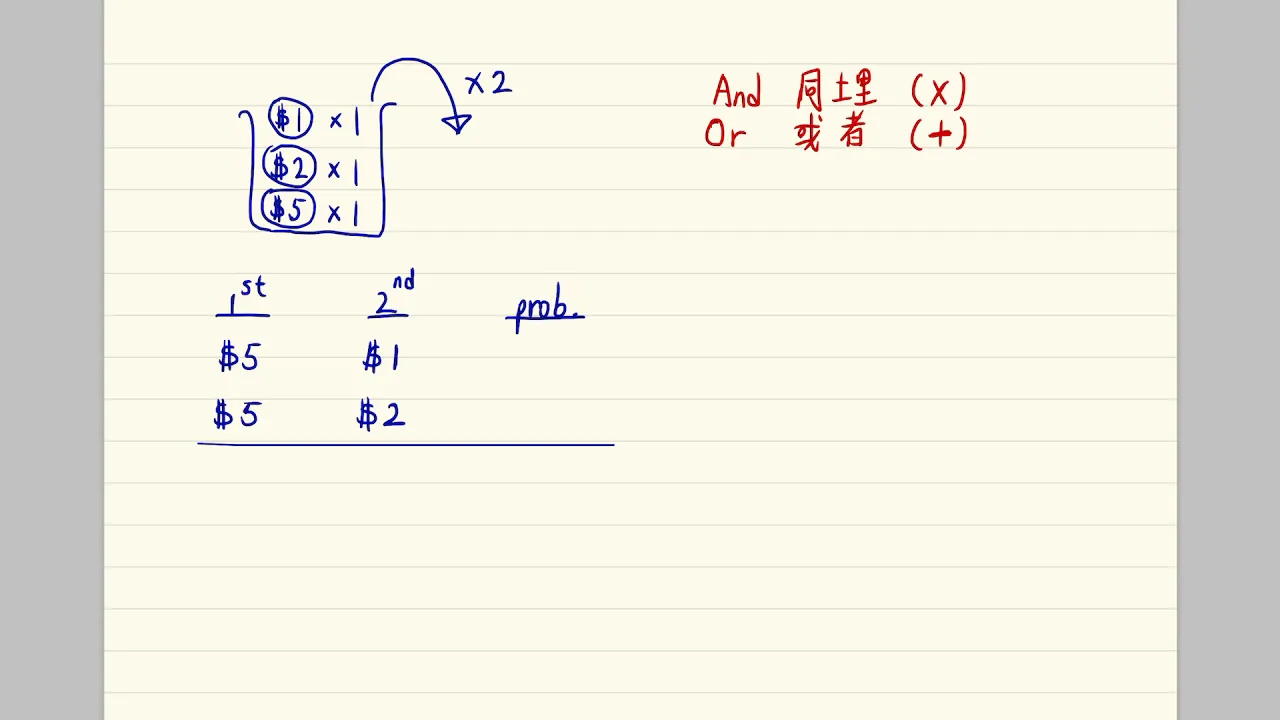 $1 × 1
× 2
$2 × 1
$5 × 1
And 同埋 (×)
Or 或者 (+)
1st 2nd prob.
$5 $1
$5 $2